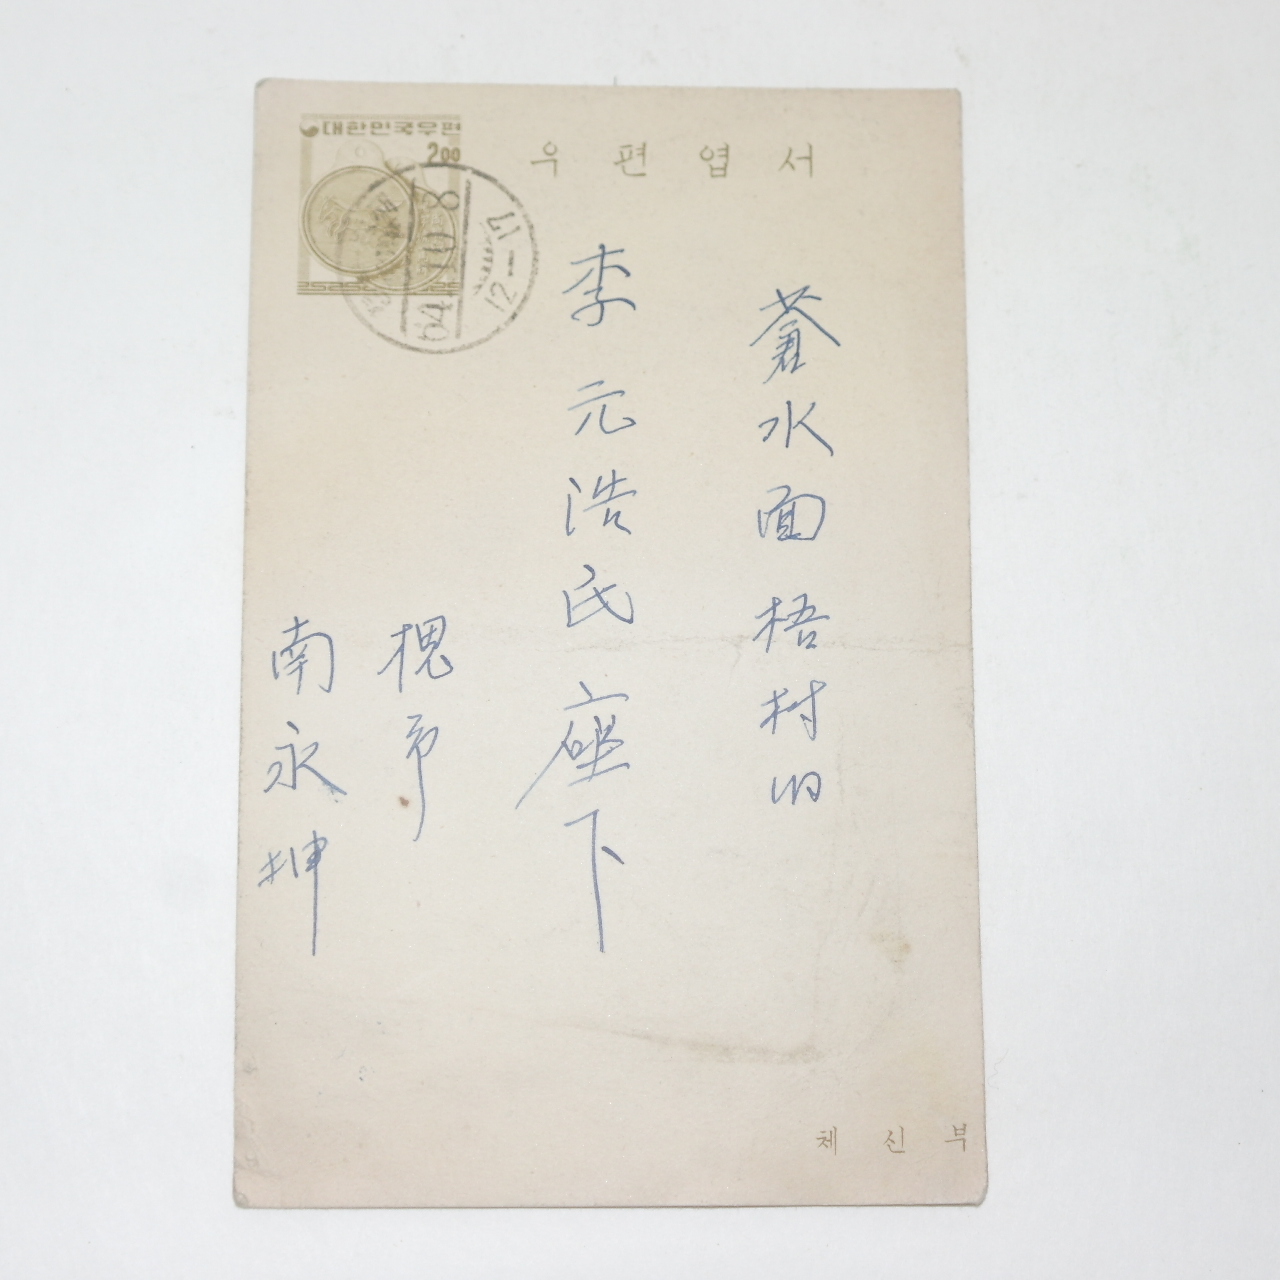 대한민국우편
2.00
우편엽서
64.10.8
12-17
蒼水面梧村洞
李元浩氏座下
槐市
南永坤
체신부